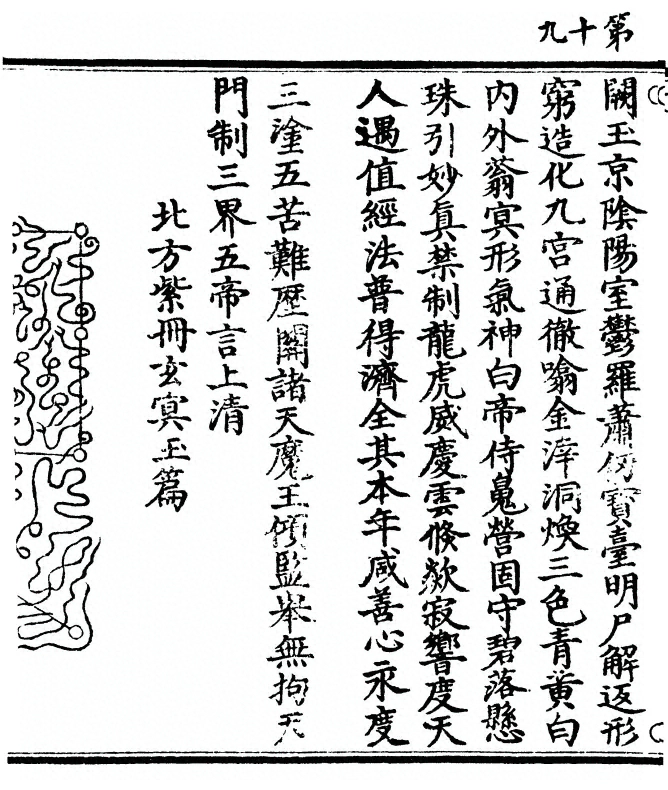 第十九
闕玉京陰陽室鬱羅蕭寶臺明尸解返形
窮造化九宮通徹噏金滓洞煥三色青黃白
内外蓊冥形氣神白帝侍營固守碧落懸
珠引妙真禁制龍虎威慶雲倏欻寂響度天
人遇值經法普得濟全其本年咸善心永度
三塗五苦難歷關諸天魔王傾監舉無拘天
門制三界五帝言上清
北方紫冊玄冥玉篇